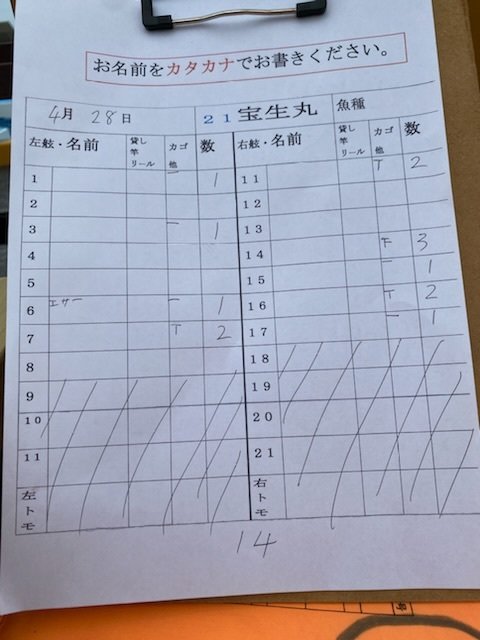 お名前をカタカナでお書きください。
4月 28日 21 宝生丸 魚種
左舷・名前 貸し竿リール カゴ他 数 右舷・名前 貸し竿リール カゴ他 数
1 一 1 11 T 2
2 12
3 一 1 13
4 14 F 3
5 15 一 1
6 エサー 一 1 16 T 2
7 T 2 17 一 1
8 18
9 19
10 20
11 21
左トモ 右トモ
14
号